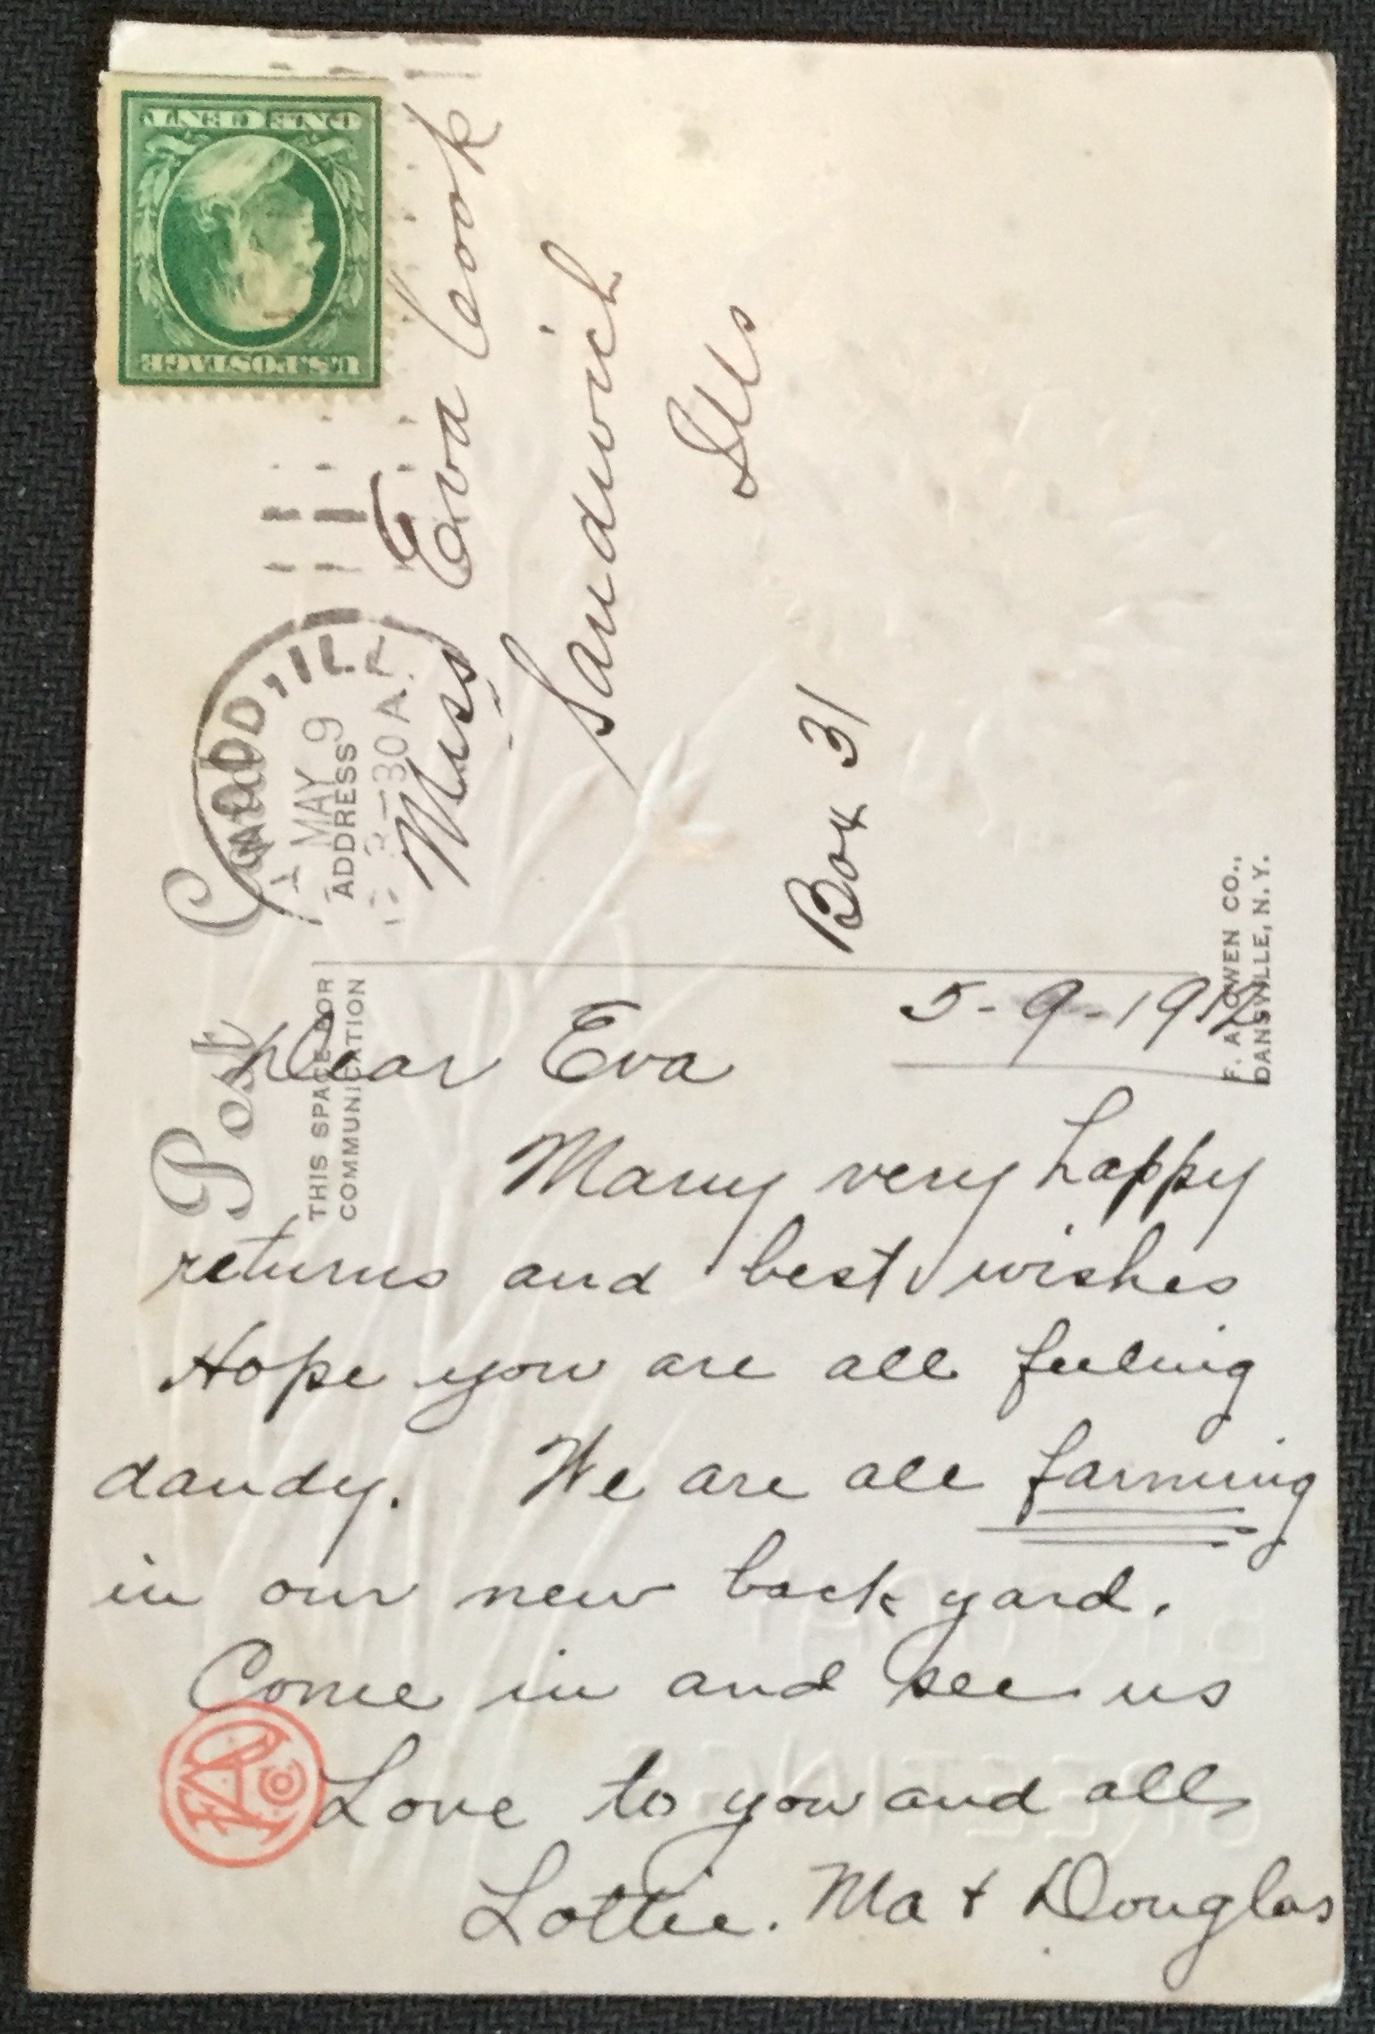 ONE CENT
U.S. POSTAGE
Post Card
THIS SPACE FOR
COMMUNICATION
ADDRESS
ILL
MAY 9
30 A.
Miss Eva Cook
Sandwich
Ills
Box 31
F. A. OWEN CO.,
DANSVILLE, N. Y.
5-9-1912
Dear Eva
Many very happy
returns and best wishes
Hope you are all feeling
dandy. We are all farming
in our new back yard.
Come in and see us
Love to you and all
Lottie. Ma + Douglas
BIRTHDAY
GREETINGS